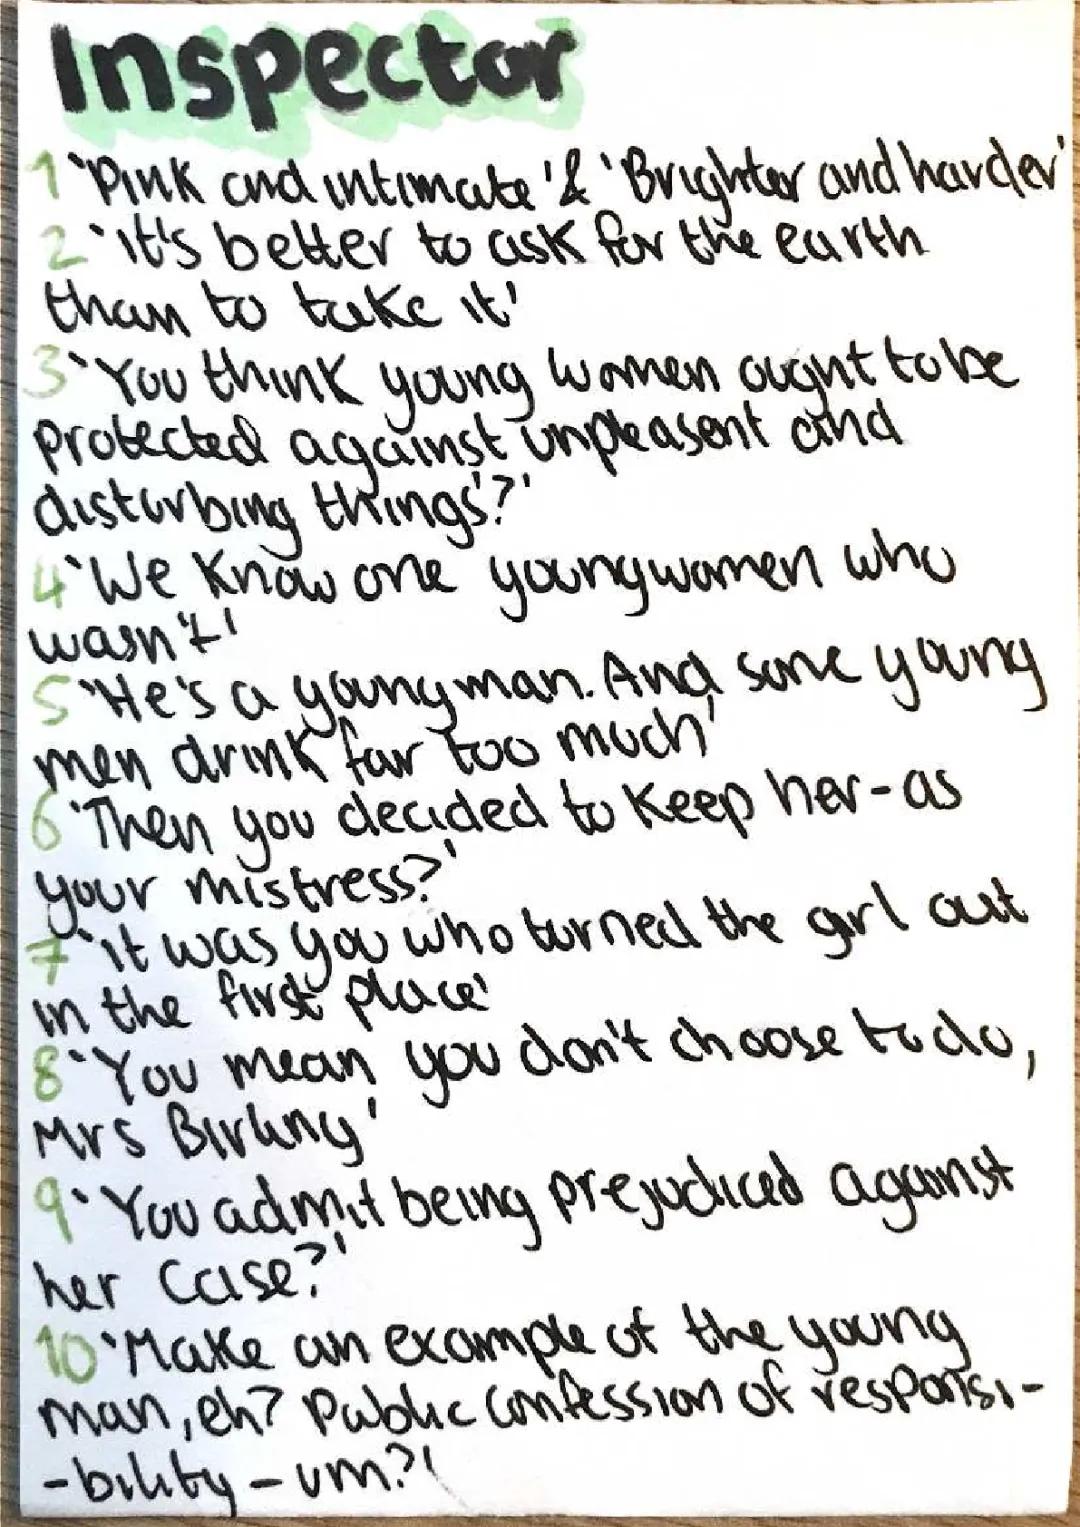 Inspector
1 'Pink and intimate' & 'Brighter and harder'
2 'it's better to ask for the earth
than to take it'
3 'You think young women ought to be
protected against unpleasent and
disturbing things?'
4 'We know one young women who
wasn't'
5 'He's a young man. And some young
men drink far too much'
6 'Then you decided to keep her - as
your mistress?'
7 'it was you who turned the girl out
in the first place'
8 'You mean you don't choose to do,
Mrs Birling'
9 'You admit being prejudiced against
her case?'
10 'Make an example of the young
man, eh? Public confession of responsi-
-bility - um?'